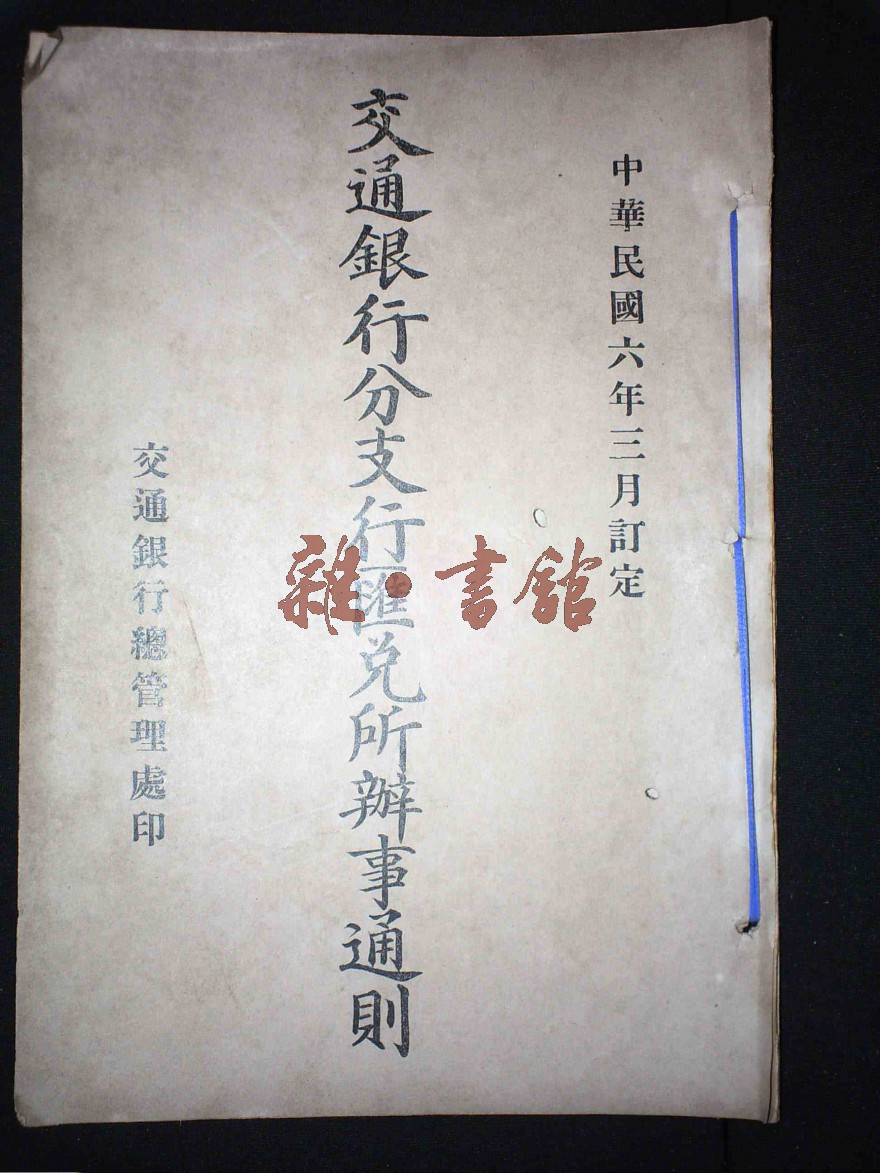 中華民國六年三月訂定
交通銀行分支行匯兑所辦事通則
交通銀行總管理處印
雜·書館